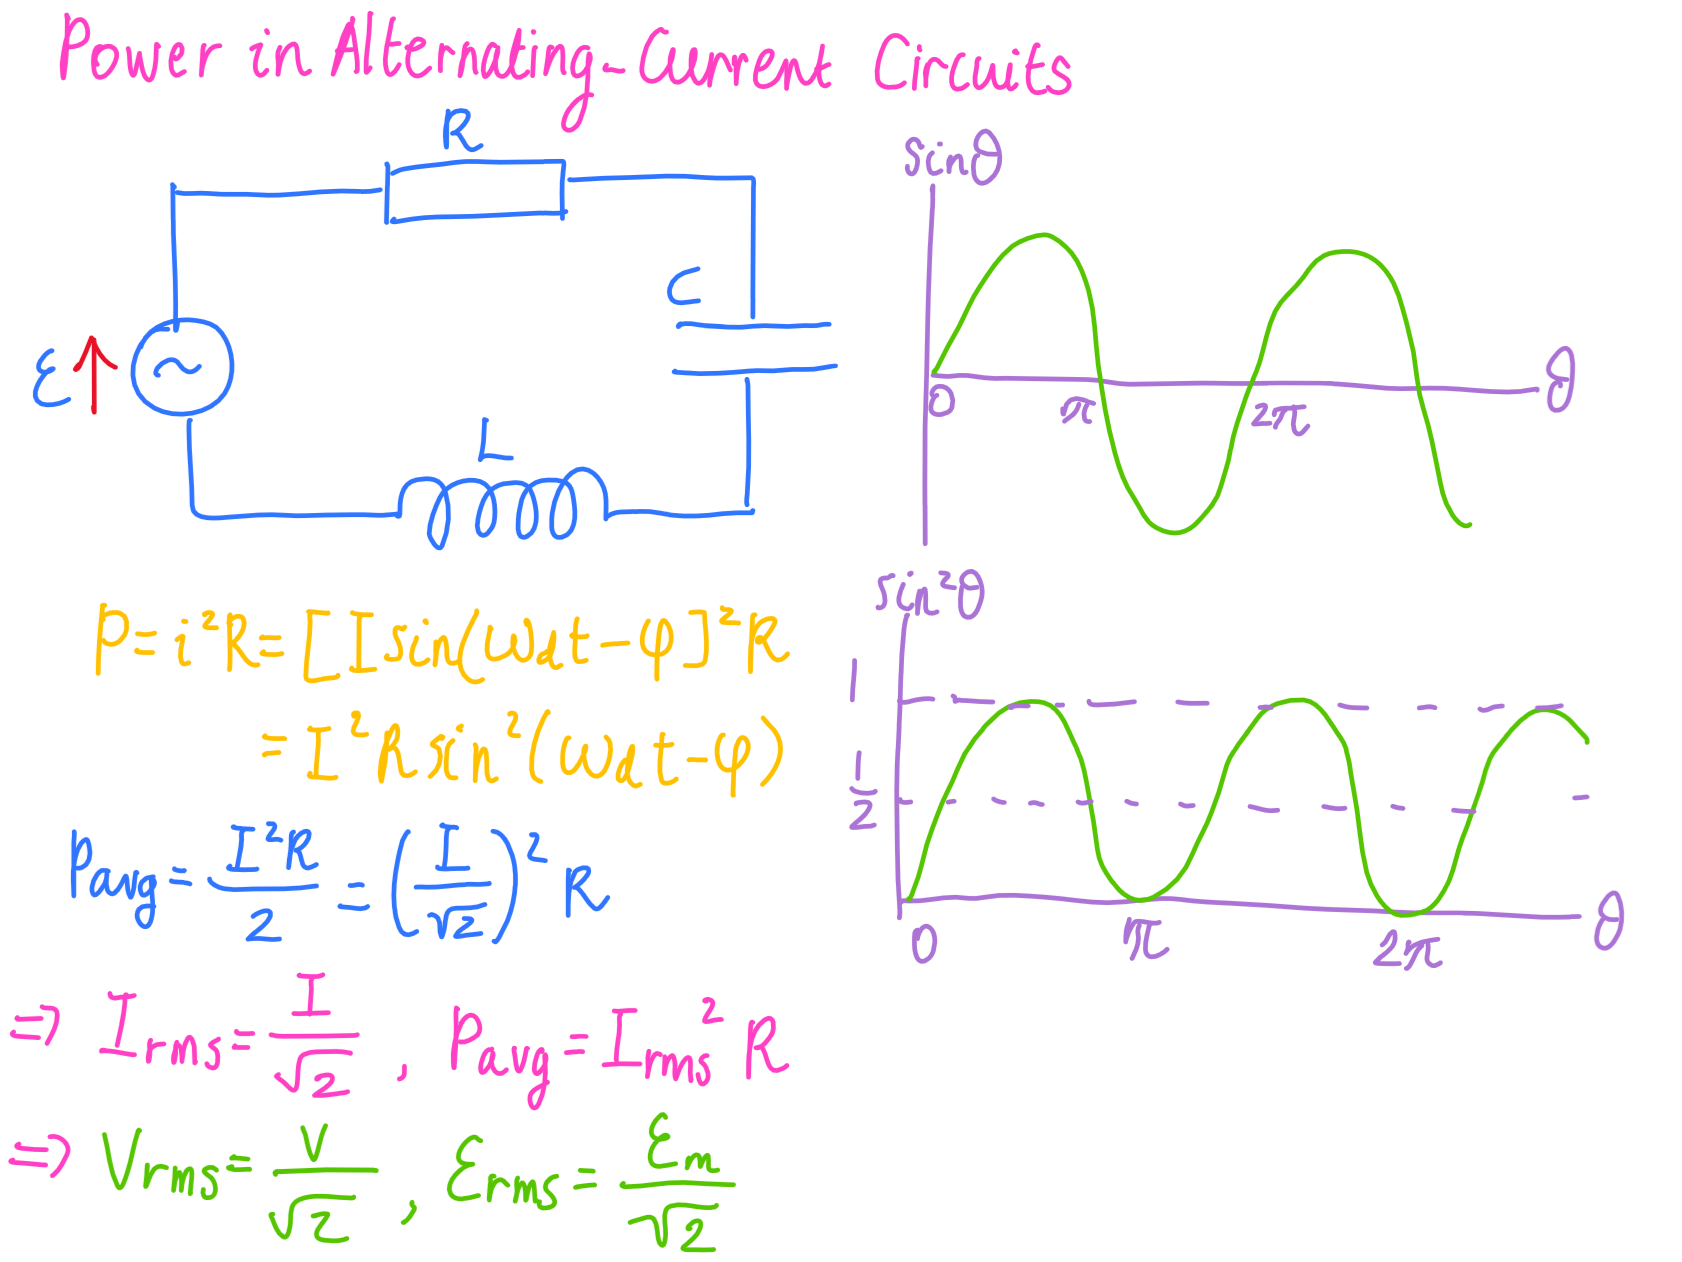 Power in Alternating-Current Circuits
R
C
ε
L
sinθ
0 π 2π θ
sin²θ
1
1/2
0 π 2π θ
P = i²R = [I sin(ω_d t - φ]² R
= I² R sin² (ω_d t - φ)
P_avg = I²R/2 = (I/√2)² R
⇒ I_rms = I/√2 , P_avg = I_rms² R
⇒ V_rms = V/√2 , ε_rms = ε_m/√2